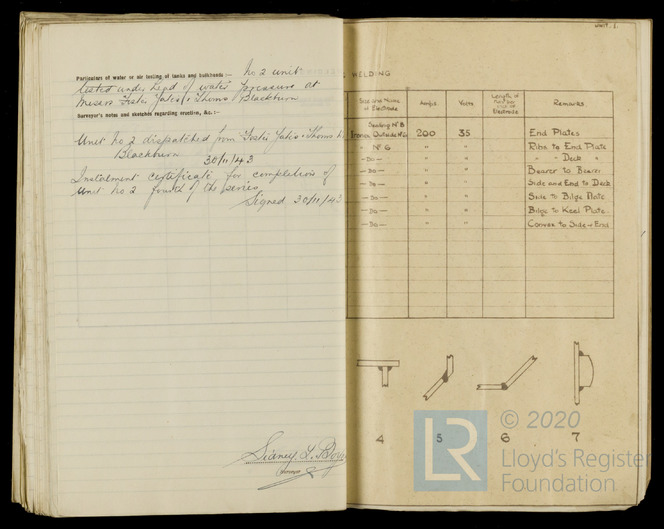 Particulars of water or air testing of tanks and bulkheads :— No 2 unit
tested under head of water pressure at
Messrs Foster Yates & Thoms Blackburn
Surveyor's notes and sketches regarding erection, &c. :—
Unit No 2 dispatched from Foster Yates & Thoms
Blackburn 30/11/43
Instalment certificate for completion of
Unit No 2 fourth of the series
Signed 30/11/43
Sidney T.
Surveyor
UNIT. 1.
WELDING
Size and Name of Electrode Amps Volts Length of Run per of Electrode Remarks
Sealing Nº 8
Outside 200 35 End Plates
" Nº 6 " " Ribs to End Plate
— Do — " " " - Deck "
— Do — " " Bearer to Bearer
— Do — " " Side and End to Deck
— Do — " " Side to Bilge Plate
— Do — " " Bilge to Keel Plate
— Do — " " Convex to Side & End
4 5 6 7
LR
© 2020
Lloyd's Register
Foundation.